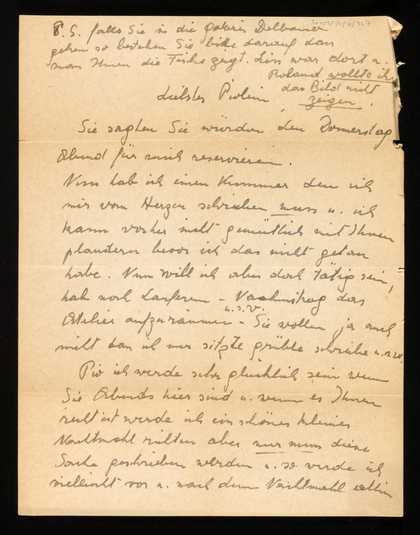 P.S. falls Sie in die Galerie Delbanco
gehen so bestehen Sie bitte darauf dass
man Ihnen die Fische zeigt. Liss war dort u.
Roland wollte ihr
das Bild nicht
zeigen.
Liebstes Piolein,
Sie sagten Sie würden den Donnerstag
Abend für mich reservieren.
Nun hab ich einen Kummer den ich
mir vom Herzen schreiben muss u. ich
kann vorher nicht gemütlich mit Ihnen
plaudern bevor ich das nicht getan
habe. Nun will ich aber doch tätig sein,
hab noch Lauferein - Nachmittag das
u.s.w.
Atelier aufzuräumen - Sie wollen ja auch
nicht dass ich nur sitze grüble schreibe u.s.w.
Pio ich werde sehr glücklich sein wenn
Sie Abends hier sind u. wenn es Ihnen
recht ist werde ich ein schönes kleines
Nachtmahl richten aber nur muss diese
Sache geschrieben werden u. so werde ich
vielleicht vor u. nach dem Nachtmahl